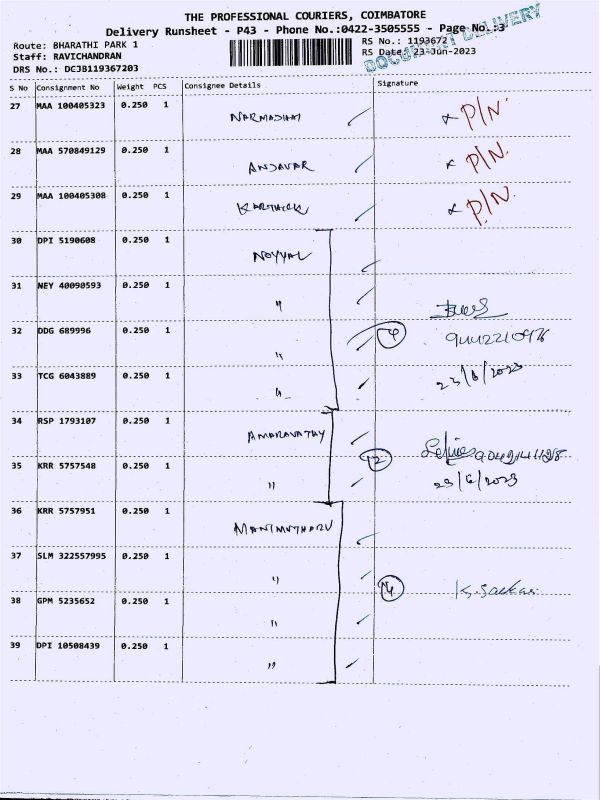 THE PROFESSIONAL COURIERS, COIMBATORE
Delivery Runsheet - P43 - Phone No.:0422-3505555 - Page No.:3
DOCUMENT DELIVERY
Route: BHARATHI PARK 1 RS No.: 1193672
Staff: RAVICHANDRAN RS Date: 23-Jun-2023
DRS No.: DCJB119367203
S No Consignment No Weight PCS Consignee Details Signature
27 MAA 100405323 0.250 1 P/N.
28 MAA 570849129 0.250 1 ANJAVAR P/N.
29 MAA 100405308 0.250 1 KARTHICK P/N.
30 DPI 5190608 0.250 1 NOYYAL
31 NEY 40090593 0.250 1 "
32 DDG 689996 0.250 1 " 4 9442210976
33 TCG 6043889 0.250 1 " 23/6/2023
34 RSP 1793107 0.250 1 AMARAVATHY
35 KRR 5757548 0.250 1 " 2 23/6/2023
36 KRR 5757951 0.250 1 MANIMUTHARU
37 SLM 322557995 0.250 1 "
38 GPM 5235652 0.250 1 " 4
39 DPI 10508439 0.250 1 "